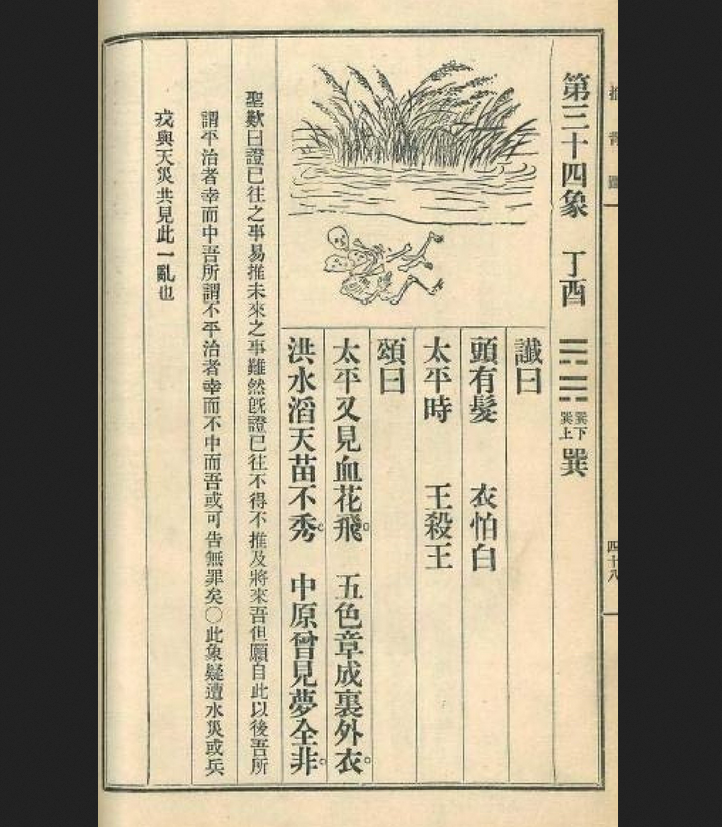 推背圖
四十八
第三十四象 丁酉 ䷸ 巽下巽上 巽
讖曰
頭有髮 衣怕白
太平時 王殺王
頌曰
太平又見血花飛。 五色章成裏外衣。
洪水滔天苗不秀。 中原曾見夢全非。
聖歎曰證已往之事易推未來之事難然旣證已往不得不推及將來吾但願自此以後吾所
謂平治者幸而中吾所謂不平治者幸而不中而吾或可告無罪矣○此象疑遭水災或兵
戎與天災共見此一亂也